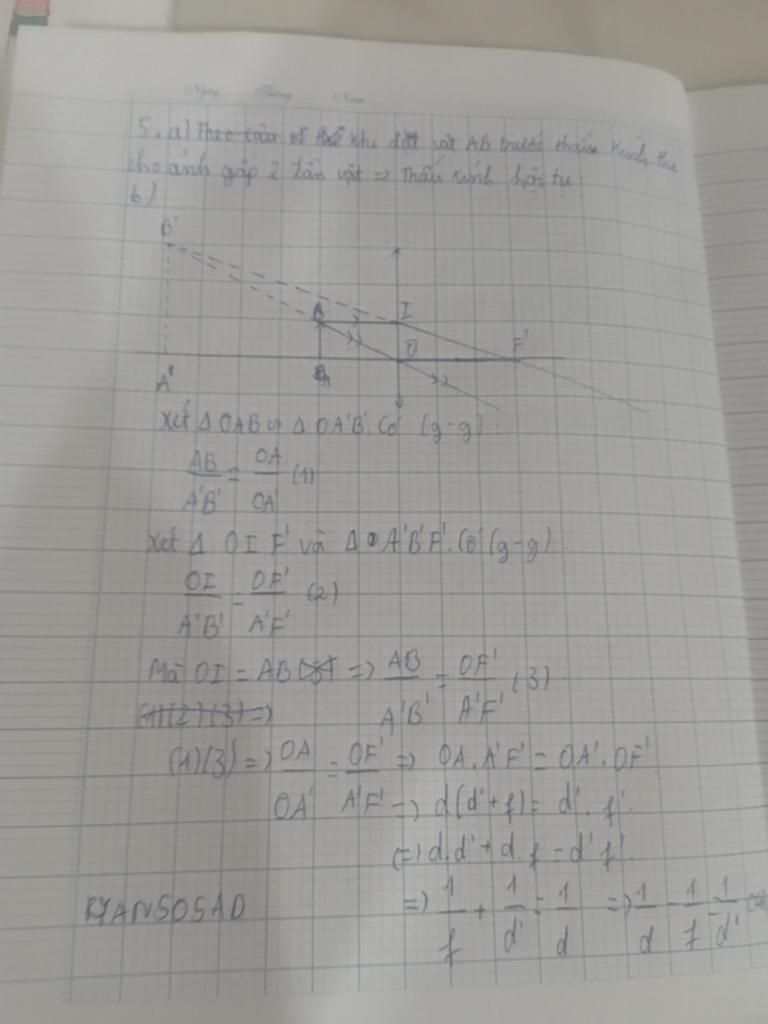 Ngày Tháng Năm
5. a) Theo khi đặt vật AB trước thấu kính
cho ảnh gấp 2 lần vật => Thấu kính hội tụ
b)
B'
B I
O F'
A' A
Xét Δ OAB Δ OA'B' Có (g-g)
AB/A'B' = OA/OA' (1)
Xét Δ OIF' và Δ A'B'F' Có (g-g)
OI/A'B' = OF'/A'F' (2)
Mà OI = AB => AB/A'B' = OF'/A'F' (3)
(1)(2)(3) =>
(1)(3) => OA/OA' = OF'/A'F' => OA.A'F' = OA'.OF'
=> d(d'+f) = d'.f'
(=) d.d' + d.f = d'f'
HANSOSAD => 1/f + 1/d' = 1/d => 1/d - 1/f 1/d'